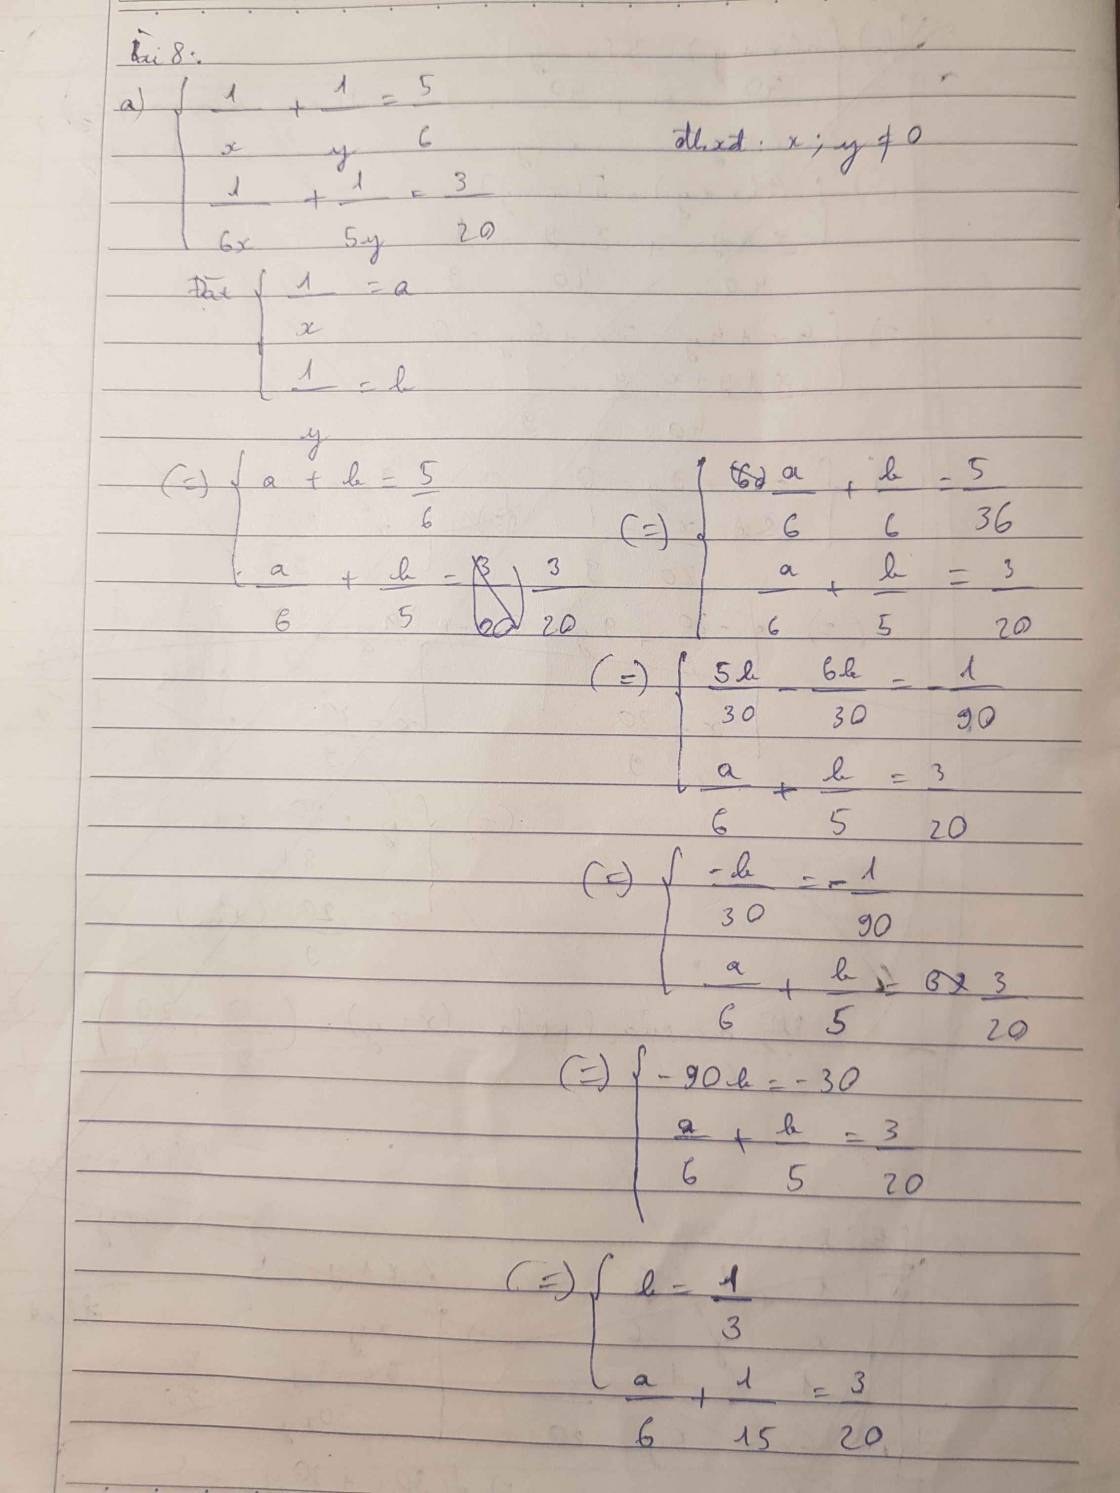 Bài 8:
a) { 1/x + 1/y = 5/6 đkxđ: x; y ≠ 0
1/6x + 1/5y = 3/20
Đặt { 1/x = a
1/y = b
(=) { a + b = 5/6
a/6 + b/5 = 3/20
(=) { a/6 + b/6 = 5/36
a/6 + b/5 = 3/20
(=) { 5b/30 - 6b/30 = - 1/90
a/6 + b/5 = 3/20
(=) { -b/30 = - 1/90
a/6 + b/5 = 3/20
(=) { -90b = -30
a/6 + b/5 = 3/20
(=) { b = 1/3
a/6 + 1/15 = 3/20